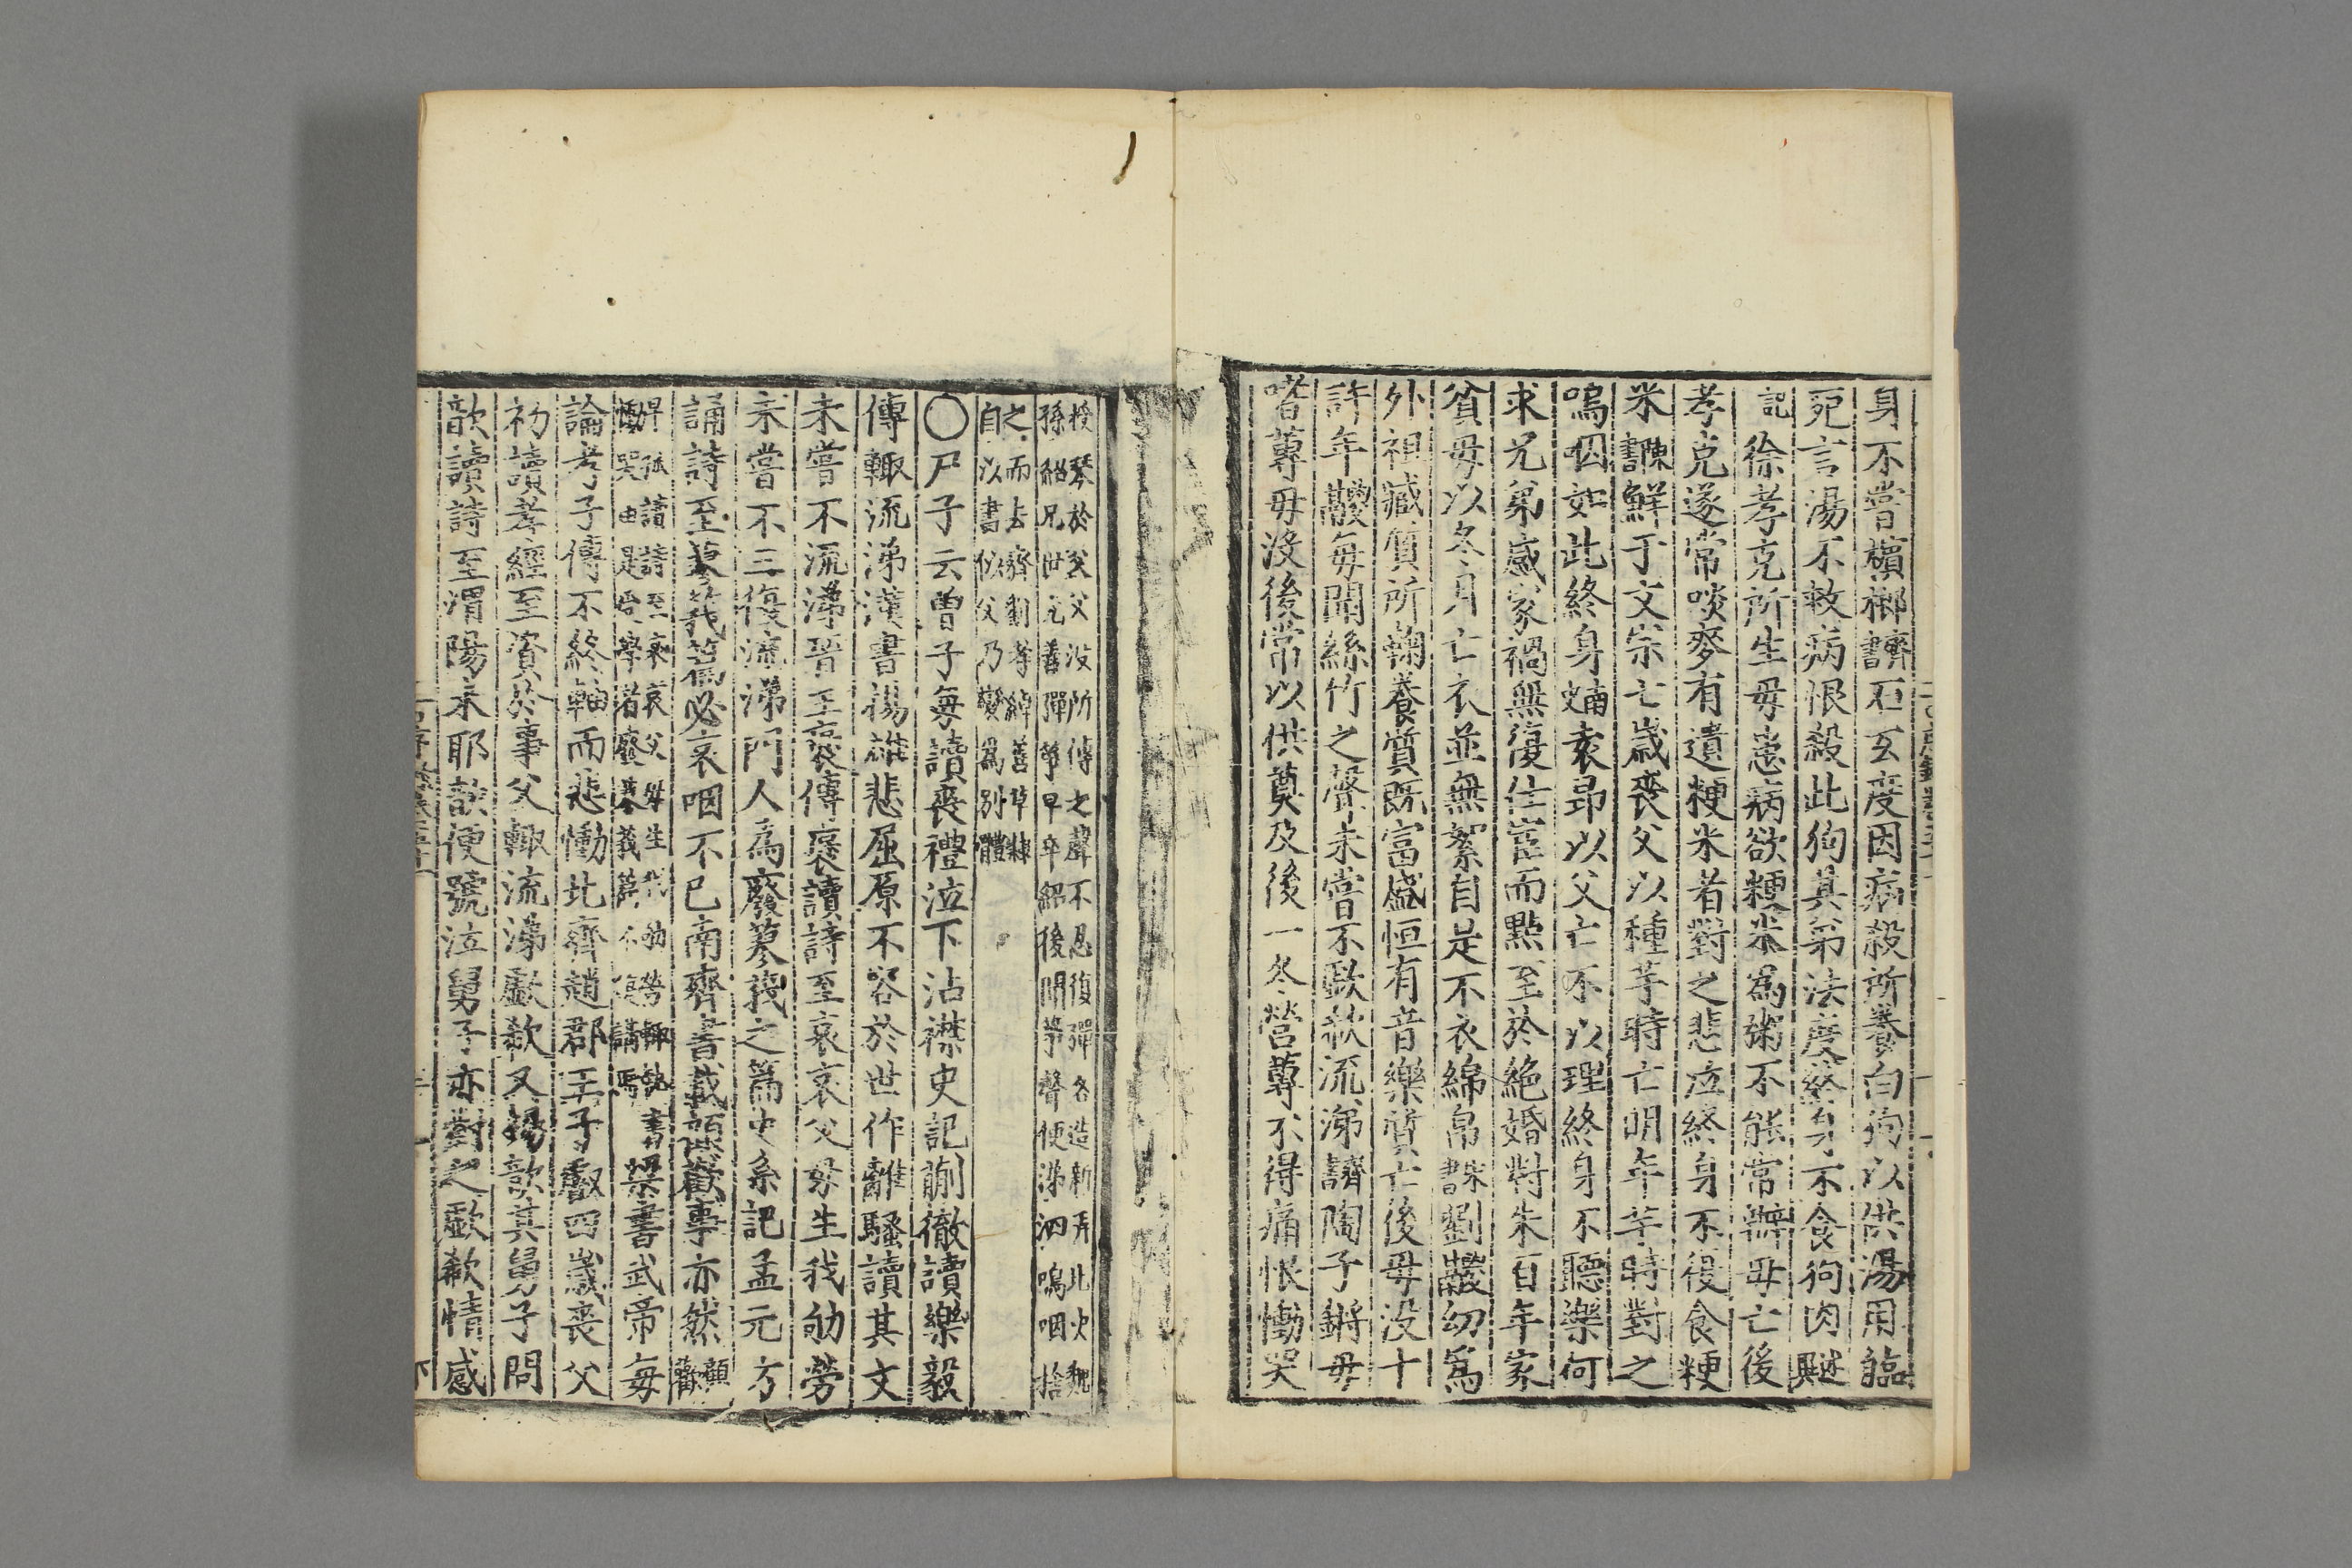 身不嘗檳榔齊書石玄度因病殺所養白狗以供湯用臨
死言湯不救病恨殺此狗其弟法度終身不食狗肉
記徐孝克所生母患病欲粳米為粥不能常辦母亡後
孝克遂常啖麥有遺粳米者對之悲泣終身不復食粳
米陳書鮮于文宗七歲喪父以種芋時亡明年芋時對之
嗚咽如此終身袁昂以父亡不以理終身不聽樂何
求兄弟感家禍無復仕宦而點至於絕婚對朱百年家
貧母以冬月亡衣並無絮自是不衣綿帛宋書劉瓛幼爲
外祖臧質所鞠養質既富盛恒有音樂質亡後母没十
許年瓛每聞絲竹之聲未嘗不歔欷流涕齊書陶子鏘母
嗜蓴母沒後常以供奠及後一冬營蓴不得痛恨慟哭
授琴於父父沒所傳之聲不忍復彈各造新弄北史魏
孫紹兄世元善彈箏早卒紹後聞箏聲便涕泗嗚咽捨
之而去齊劉孝綽善草隸
自以書似父乃變爲別體
〇尸子云曾子每讀喪禮泣下沾襟史記蒯徹讀樂毅
傳輒流涕漢書揚雄悲屈原不容於世作離騷讀其文
未嘗不流涕晉王裒傳裒讀詩至哀哀父母生我劬勞
未嘗不三復流涕門人爲廢蓼莪之篇史系記孟元方
誦詩至蓼莪篇必哀咽不已南齊書載顧歡事亦然顧歡
早孤讀詩至哀哀父母生我劬勞輒執書
慟哭由是受學者廢蓼莪篇不復講焉
梁書武帝每
論孝子傳不終軸而悲慟北齊趙郡王子叡四歲喪父
初讀孝經至資於事父輒流涕歔欷又楊愔其舅子問
愔讀詩至渭陽未耶愔便號泣舅子亦對之歔欷情感